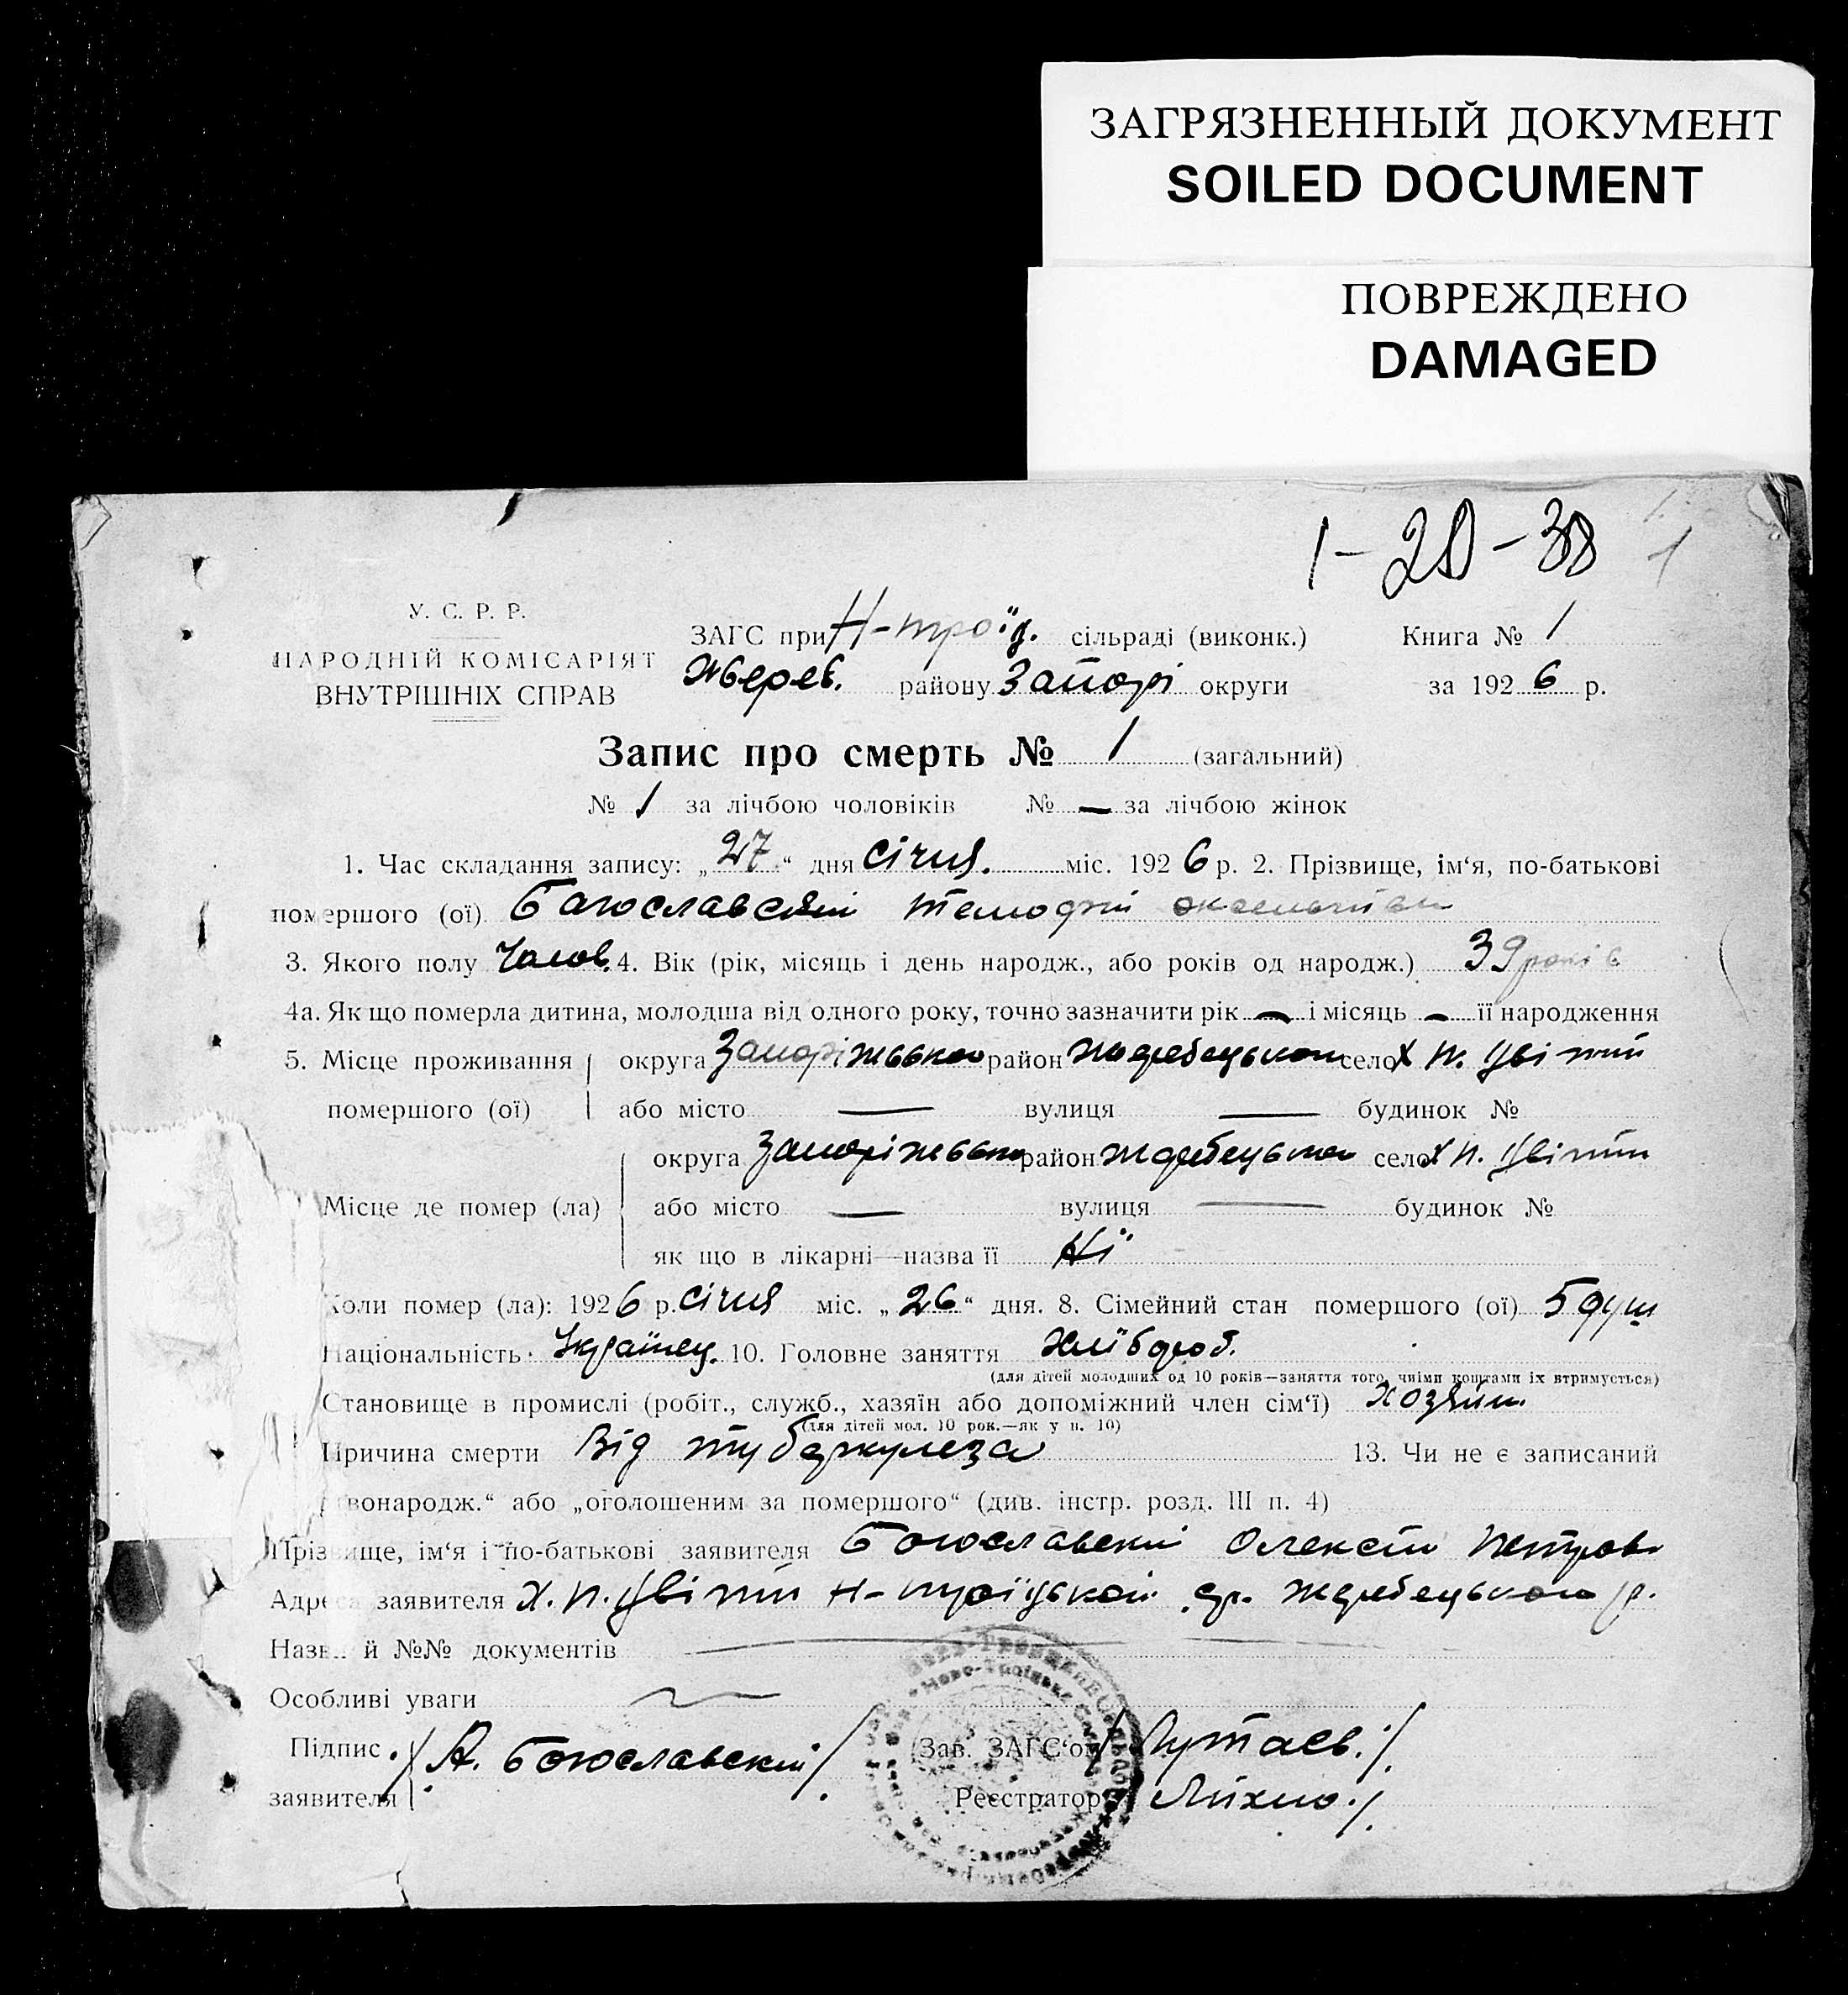 ЗАГРЯЗНЕННЫЙ ДОКУМЕНТ
SOILED DOCUMENT
ПОВРЕЖДЕНО
DAMAGED
1-20-38 1
У. С. Р. Р.
НАРОДНІЙ КОМІСАРІЯТ
ВНУТРІШНІХ СПРАВ
ЗАГС при Н-троїц. сільраді (виконк.)
Жереб. району Запорі округи
Книга № 1
за 1926 р.
Запис про смерть № 1 (загальний)
№ 1 за лічбою чоловіків № — за лічбою жінок
1. Час складання запису: „27“ дня січня. міс. 1926 р. 2. Прізвище, ім‘я, по-батькові
помершого (ої) Богославский
3. Якого полу Чолов. 4. Вік (рік, місяць і день народж., або років од народж.) 39 років
4а. Як що померла дитина, молодша від одного року, точно зазначити рік — і місяць — її народження
5. Місце проживання округа Запоріжської район Жеребецьком село Х п. Цвітни
помершого (ої) або місто — вулиця — будинок №
округа Запоріжської район Жеребецьком село Х п. Цвітни
Місце де помер (ла) або місто — вулиця — будинок №
як що в лікарні—назва її Ні
Коли помер (ла): 1926 р. січня міс. „26“ дня. 8. Сімейний стан помершого (ої) 5 душ
Національність Українец. 10. Головне заняття Хлібороб.
(для дітей молодших од 10 років—заняття того, чиїми коштами їх втримується)
Становище в промислі (робіт., служб., хазяїн або допоміжний член сім‘ї) Хозяин.
(для дітей мол. 10 рок.—як у п. 10)
Причина смерти Від туберкулеза 13. Чи не є записаний
вонародж.“ або „оголошеним за помершого“ (див. інстр. розд. III п. 4)
Прізвище, ім‘я і по-батькові заявителя Богославский Олексій Петров
Адреса заявителя Х. п. Цвітни Н-троїцькой ср. Жеребецького р.
Назв й №№ документів —
Особливі уваги
Підпис заявителя /А. Богославский/
Зав. ЗАГС‘ом
Реєстратор